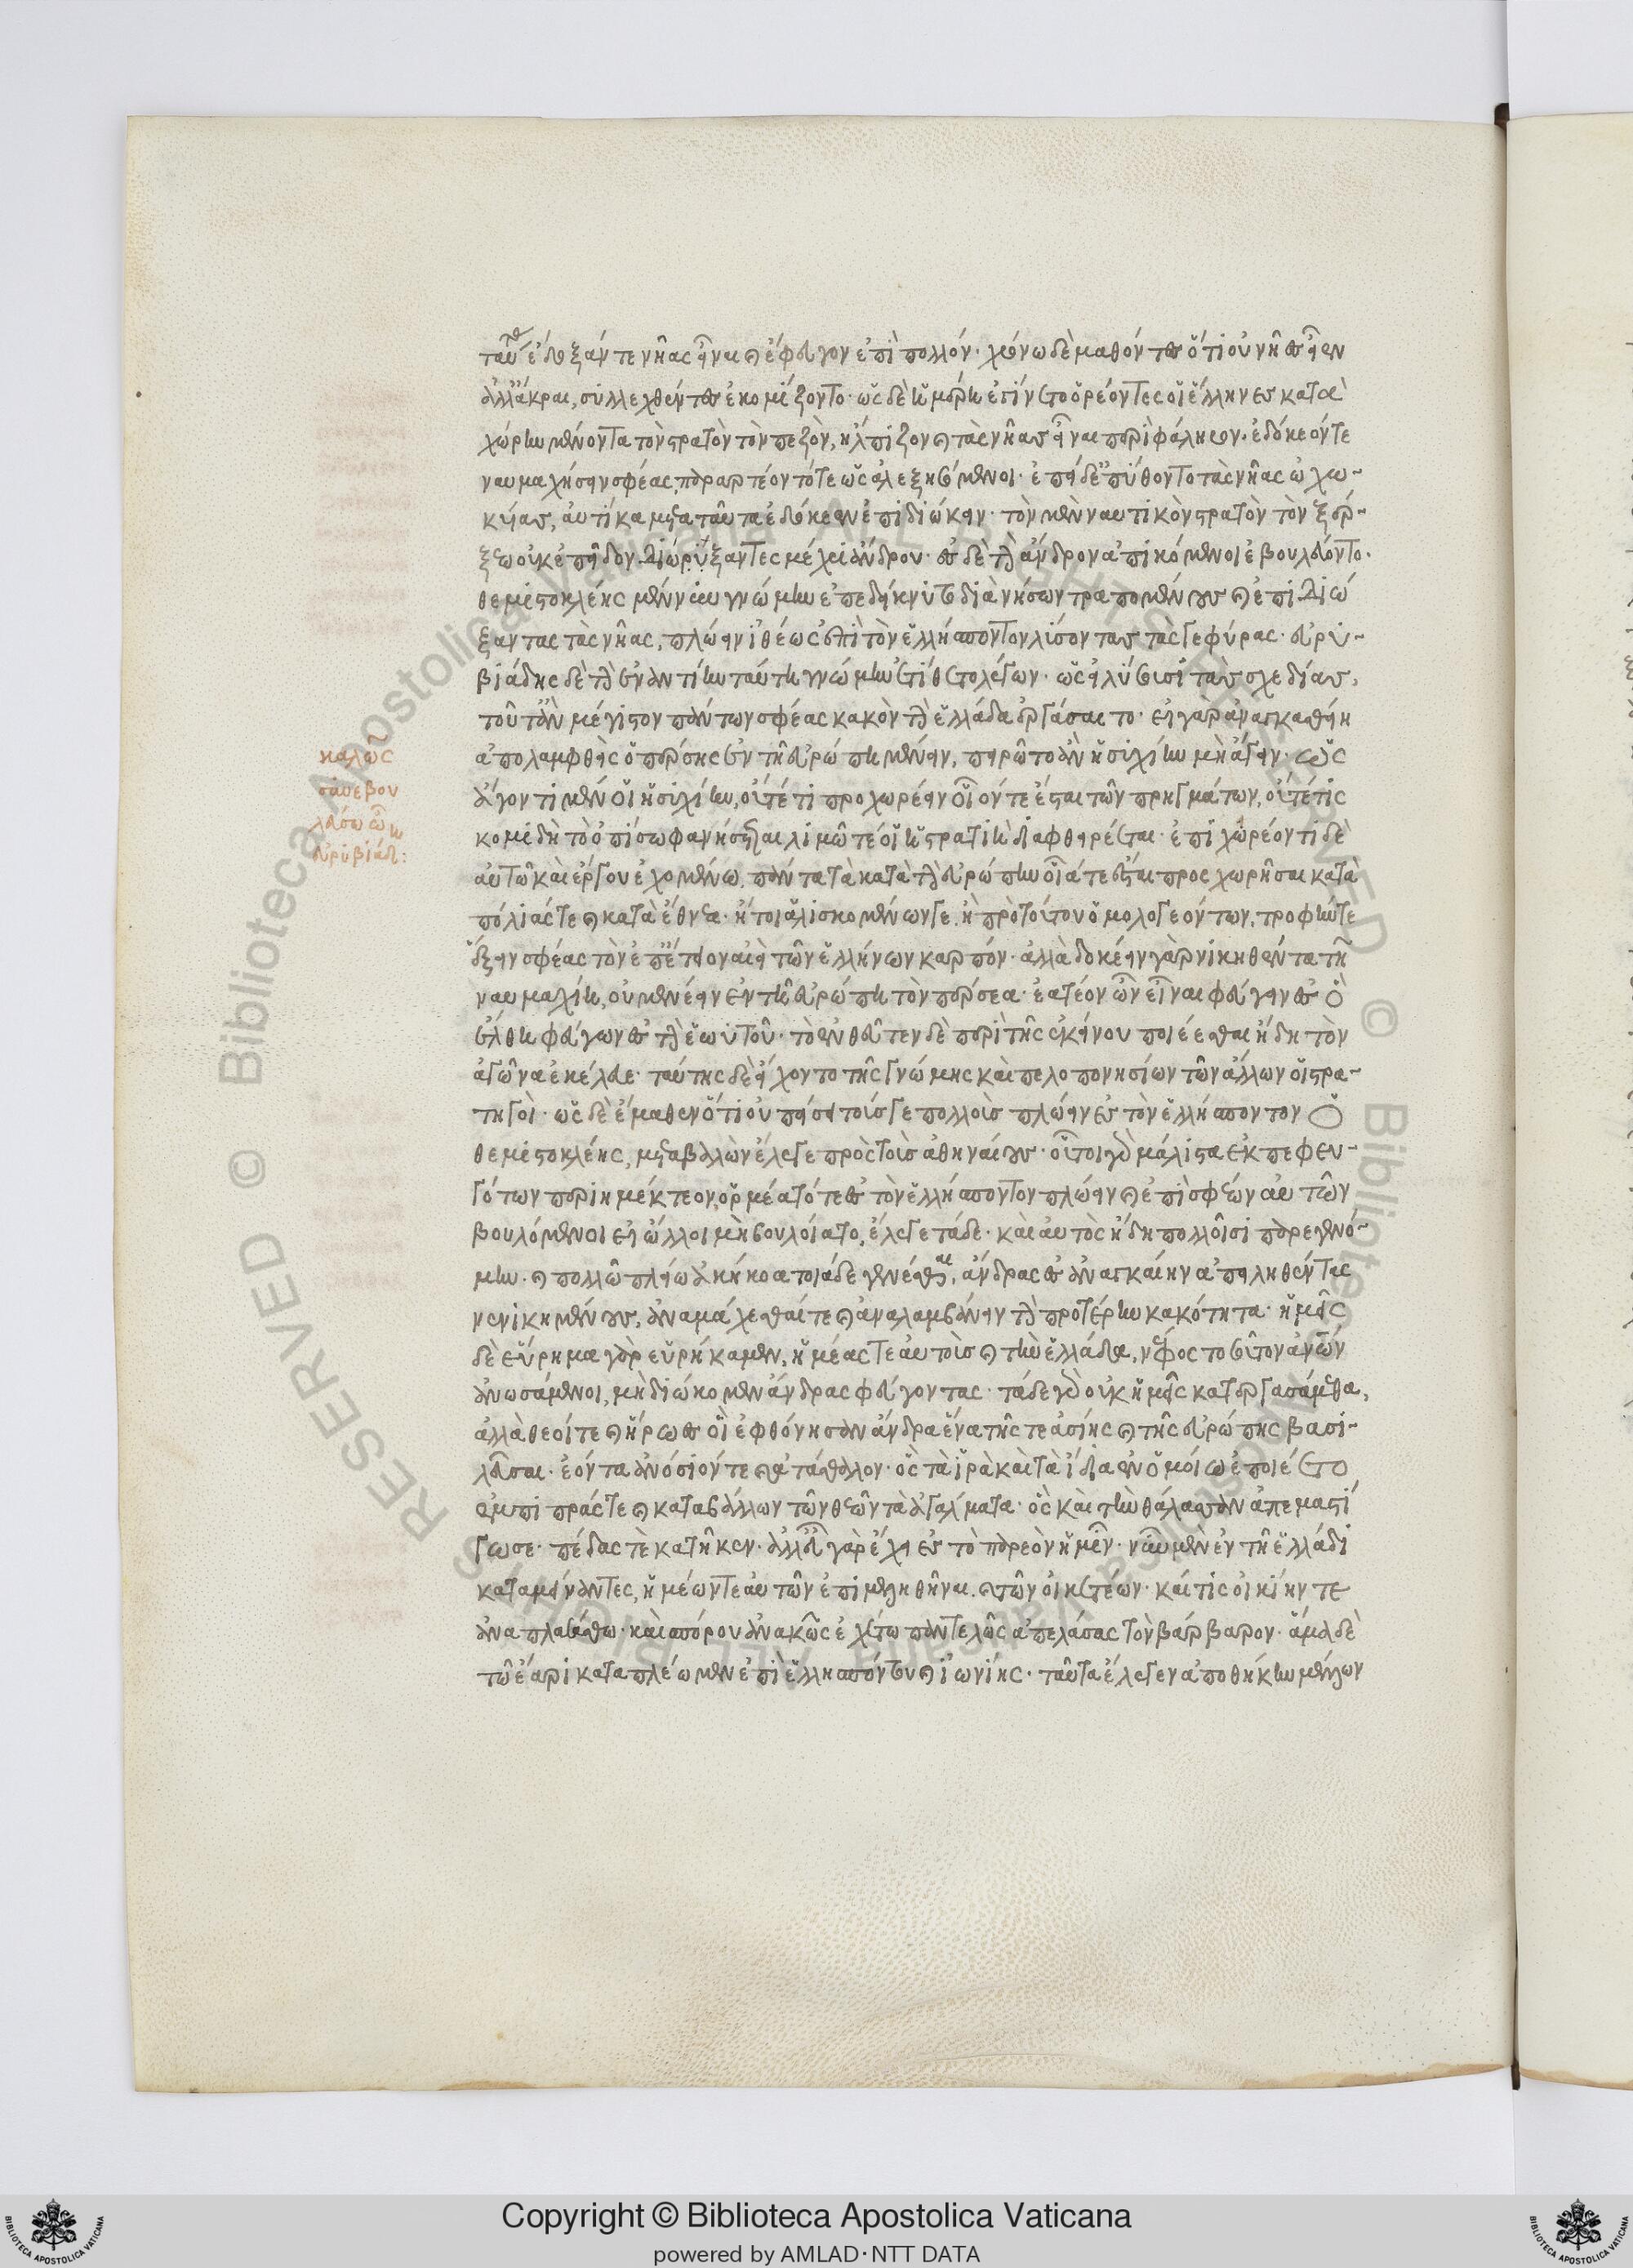 ταύτης ἔδοξάν τε νῆας εἶναι καὶ ἔφευγον ἐπὶ πολλόν· χρόνῳ δὲ μαθόντες ὅτι οὐ νῆες εἶεν
ἀλλ' ἄκραι, συλλεχθέντες ἐκομίζοντο· ὡς δὲ ἡμέρη ἐγίνετο ὁρέοντες οἱ ἕλληνες κατὰ
χώρην μένοντα τὸν στρατὸν τὸν πεζὸν, ἤλπιζον καὶ τὰς νῆας εἶναι περὶ φάληρον· ἐδόκεόν τε
ναυμαχήσειν σφέας, παραρτέοντό τε ὡς ἀλεξησόμενοι· ἐπεὶ δὲ ἐπύθοντο τὰς νῆας οἰχω-
κυίας, αὐτίκα μετὰ ταῦτα ἐδόκεεν ἐπιδιώκειν· τὸν μὲν ναυτικὸν στρατὸν τὸν ξέρ-
ξεω οὐκ ἐπεῖδον διώξαντες μέχρι ἄνδρου· ἐς δὲ τὴν ἄνδρον ἀπικόμενοι ἐβουλεύοντο.
θεμιστοκλέης μέν νυν γνώμην ἐπεδείκνυτο διὰ νήσων τραπομένους καὶ ἐπιδιώ
ξαντας τὰς νῆας, πλώειν ἰθέως ἐπὶ τὸν ἑλλήσποντον λύσοντας τὰς γεφύρας· εὐρυ-
βιάδης δὲ τὴν ἐναντίην ταύτῃ γνώμην ἐτίθετο λέγων· ὡς εἰ λύσουσι τὰς σχεδίας,
τοῦτ' ἂν μέγιστον πάντων σφέας κακὸν τὴν ἑλλάδα ἐργάσαιτο· εἰ γὰρ ἀναγκασθείη
ἀπολαμφθεὶς ὁ πέρσης ἐν τῇ εὐρώπῃ μένειν, πειρῷτο ἂν ἡσυχίην μὴ ἄγειν· ὡς
ἄγοντι μέν οἱ ἡσυχίην, οὔτέ τι προχωρέειν οἷόν τε ἔσται τῶν πρηγμάτων, οὔτέ τις
κομιδὴ τὸ ὀπίσω φανήσεται λιμῷ τέ οἱ ἡ στρατιὴ διαφθερέεται· ἐπιχειρέοντι δὲ
αὐτῷ καὶ ἔργου ἐχομένῳ, πάντα τὰ κατὰ τὴν εὐρώπην οἷά τε ἔσται προσχωρῆσαι κατὰ
πόλιάς τε καὶ κατὰ ἔθνεα· ἤτοι ἁλισκομένων γε, ἢ πρὸ τούτου ὁμολογεόντων, τροφήν τε
ἕξειν σφέας τὸν ἐπέτειον αἰεὶ τῶν ἑλλήνων καρπόν· ἀλλὰ δοκέειν γὰρ νικηθέντα τῇ
ναυμαχίῃ, οὐ μενέειν ἐν τῇ εὐρώπῃ τὸν πέρσεα· ἐατέον ὦν εἶναι φεύγειν ἐς ὃ
ἔλθῃ φεύγων ἐς τὴν ἑωυτοῦ· τὸ ἐνθεῦτεν δὲ περὶ τῆς ἐκείνου ποιέεσθαι ἤδη τὸν
ἀγῶνα ἐκέλευε· ταύτης δὲ εἴχοντο τῆς γνώμης καὶ πελοποννησίων τῶν ἄλλων οἱ στρα-
τηγοὶ· ὡς δὲ ἔμαθεν ὅτι οὐ πείσει τούς γε πολλοὺς πλώειν ἐς τὸν ἑλλήσποντον ὁ
θεμιστοκλέης, μεταβαλὼν ἔλεγε πρὸς τοὺς ἀθηναίους· οὗτοι γὰρ μάλιστα ἐκπεφευ-
γότων περιημέκτεον, ὁρμέατό τε ἐς τὸν ἑλλήσποντον πλώειν καὶ ἐπὶ σφέων αὐτῶν
βουλόμενοι εἰ ὧλλοι μὴ βουλοίατο, ἔλεγε τάδε· καὶ αὐτὸς ἤδη πολλοῖσι παρεγενό-
μην· καὶ πολλῷ πλείω ἀκήκοα τοιάδε γενέσθαι, ἄνδρας ἐς ἀναγκαίην ἀπειληθέντας
νενικημένους, ἀναμάχεσθαί τε καὶ ἀναλαμβάνειν τὴν προτέρην κακότητα· ἡμεῖς
δὲ εὕρημα γὰρ εὑρήκαμεν, ἡμέας τε αὐτοὺς καὶ τὴν ἑλλάδα, νέφος τοσοῦτον ἀνθρώπων
ἀνωσάμενοι, μὴ διώκομεν ἄνδρας φεύγοντας· τάδε γὰρ οὐκ ἡμεῖς κατεργασάμεθα,
ἀλλὰ θεοί τε καὶ ἥρωες οἳ ἐφθόνησαν ἄνδρα ἕνα τῆς τε ἀσίης καὶ τῆς εὐρώπης βασι-
λεῦσαι· ἐόντα ἀνόσιόν τε καὶ ἀτάσθαλον· ὃς τὰ ἱρὰ καὶ τὰ ἴδια ἐν ὁμοίῳ ἐποιέετο
ἐμπιπράς τε καὶ καταβάλλων τῶν θεῶν τὰ ἀγάλματα· ὃς καὶ τὴν θάλασσαν ἀπεμαστί
γωσε· πέδας τε κατῆκεν· ἀλλ' εὖ γὰρ ἔχει ἐς τὸ παρεὸν ἡμῖν· νῦν μὲν ἐν τῇ ἑλλάδι
καταμείναντες, ἡμέων τε αὐτῶν ἐπιμεληθῆναι καὶ τῶν οἰκετέων· καί τις οἰκίην τε
ἀναπλασάσθω· καὶ σπόρου ἀνακῶς ἐχέτω παντελῶς ἀπελάσας τὸν βάρβαρον· ἅμα δὲ
τῷ ἔαρι καταπλέωμεν ἐπὶ ἑλλησπόντου καὶ ἰωνίης· ταῦτα ἔλεγεν ἀποθήκην μέλλων
καλῶς
σὺ ἐβου
λεύσω ὦ
εὐρυβιάδη:
Copyright © Biblioteca Apostolica Vaticana
powered by AMLAD·NTT DATA